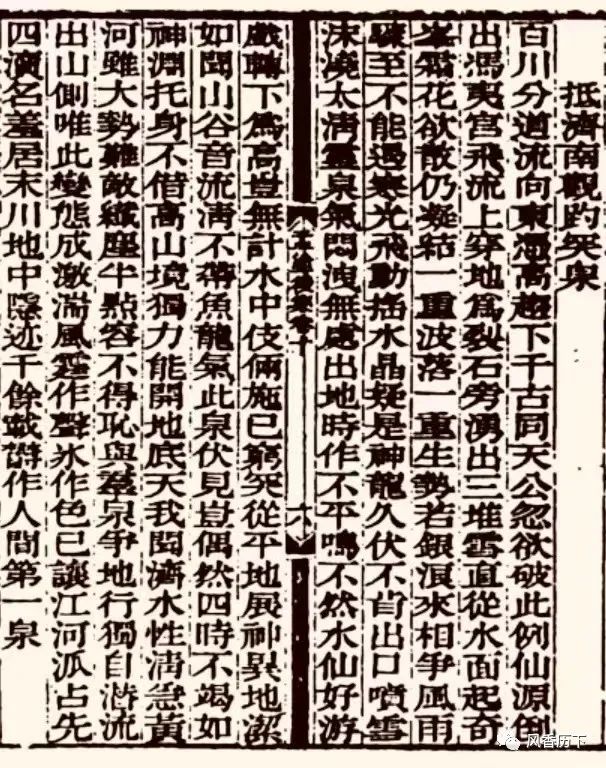 抵濟南觀趵突泉
百川分道流向東憑高趨下千古同天公忽欲破此例仙源倒
出馮夷宮飛流上穿地爲裂石旁湧出三堆雪直從水面起奇
峯霜花欲散仍凝結一重波落一重生勢若銀浪來相爭風雨
驟至不能過寒光飛動搖水晶疑是神龍久伏不肯出口噴雪
沫澆太清靈泉氣悶洩無處出地時作不平鳴不然水仙好游
卷十
六
戲轉下爲高豈無計水中伎倆施已窮突從平地展神異地潔
如聞山谷音流淸不帶魚龍氣此泉伏見豈偶然四時不竭如
神淵托身不借高山境獨力能開地底天我聞濟水性淸急黃
河雖大勢難敵纖塵半點容不得恥與羣泉爭地行獨自潛流
出山側唯此變態成激湍風霆作聲冰作色已讓江河派占先
四瀆名羞居末川地中隱迹千餘載作人間第一泉
风香历下